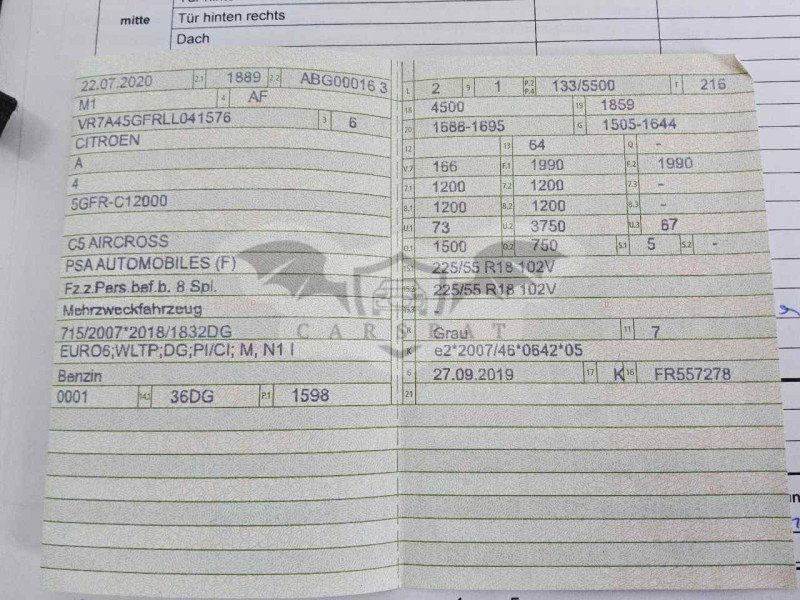 mitte
Tür hinten rechts
Dach
22.07.2020 2.1 1889 2.2 ABG00016 3
M1 4 AF
VR7A45GFRLL041576 3 6
CITROEN
A
4
5GFR-C12000
C5 AIRCROSS
PSA AUTOMOBILES (F)
Fz.z.Pers.bef.b. 8 Spl.
Mehrzweckfahrzeug
715/2007*2018/1832DG
EURO6;WLTP;DG;PI/CI; M, N1 I
Benzin
0001 14.1 36DG P.1 1598
L 2 9 1 P.2 P.4 133/5500 T 216
18 4500 19 1859
20 1688-1695 G 1505-1644
12 - 13 64 Q -
V.7 166 F.1 1990 F.2 1990
7.1 1200 7.2 1200 7.3 -
8.1 1200 8.2 1200 8.3 -
U.1 73 U.2 3750 U.3 67
O.1 1500 O.2 750 S.1 5 S.2 -
15.1 225/55 R18 102V
15.2 225/55 R18 102V
15.3 -
R Grau 11 7
K e2*2007/46*0642*05
6 27.09.2019 17 K 16 FR557278
21
CARSBAT